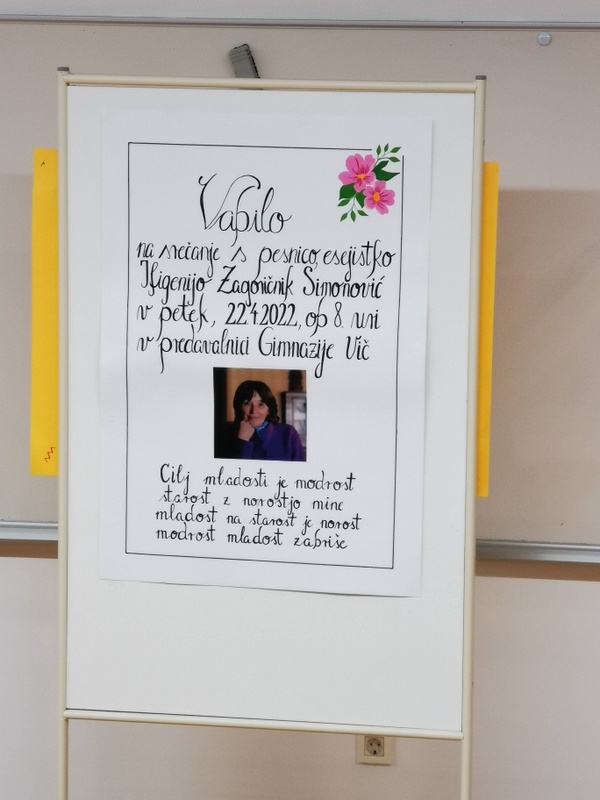 Vabilo
na srečanje s pesnico, esejistko
Ifigenijo Zagoričnik Simonović
v petek, 22.4.2022, ob 8. uri
v predavalnici Gimnazije Vič
Cilj mladosti je modrost
starost z norostjo mine
mladost na starost je norost
modrost mladost zabriše